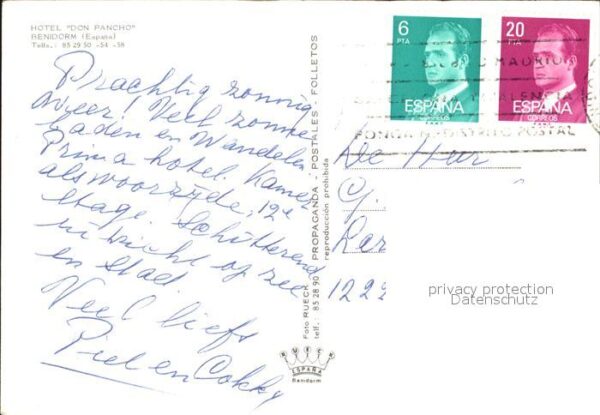 HOTEL "DON PANCHO"
BENIDORM (España)
Telfs.: 85 29 50 - 54 - 58
Prachtig zonnig
weer! Veel zonne
baden en wandelen
Prima hotel. Kamer
als voorzijde, 12e
etage. Schitterend
uitzicht op zee
en stad.
Veel liefs
Piet en Cokky
Foto RUECK - PROPAGANDA - POSTALES - FOLLETOS
telf.: 85 28 90 reproducción prohibida
RUECK
ESPAÑA
Benidorm
6
PTA
ESPAÑA
CORREOS
20
PTA
ESPAÑA
CORREOS
PONGA DISTRITO POSTAL
De Heer
C.
Lar
122
privacy protection
Datenschutz